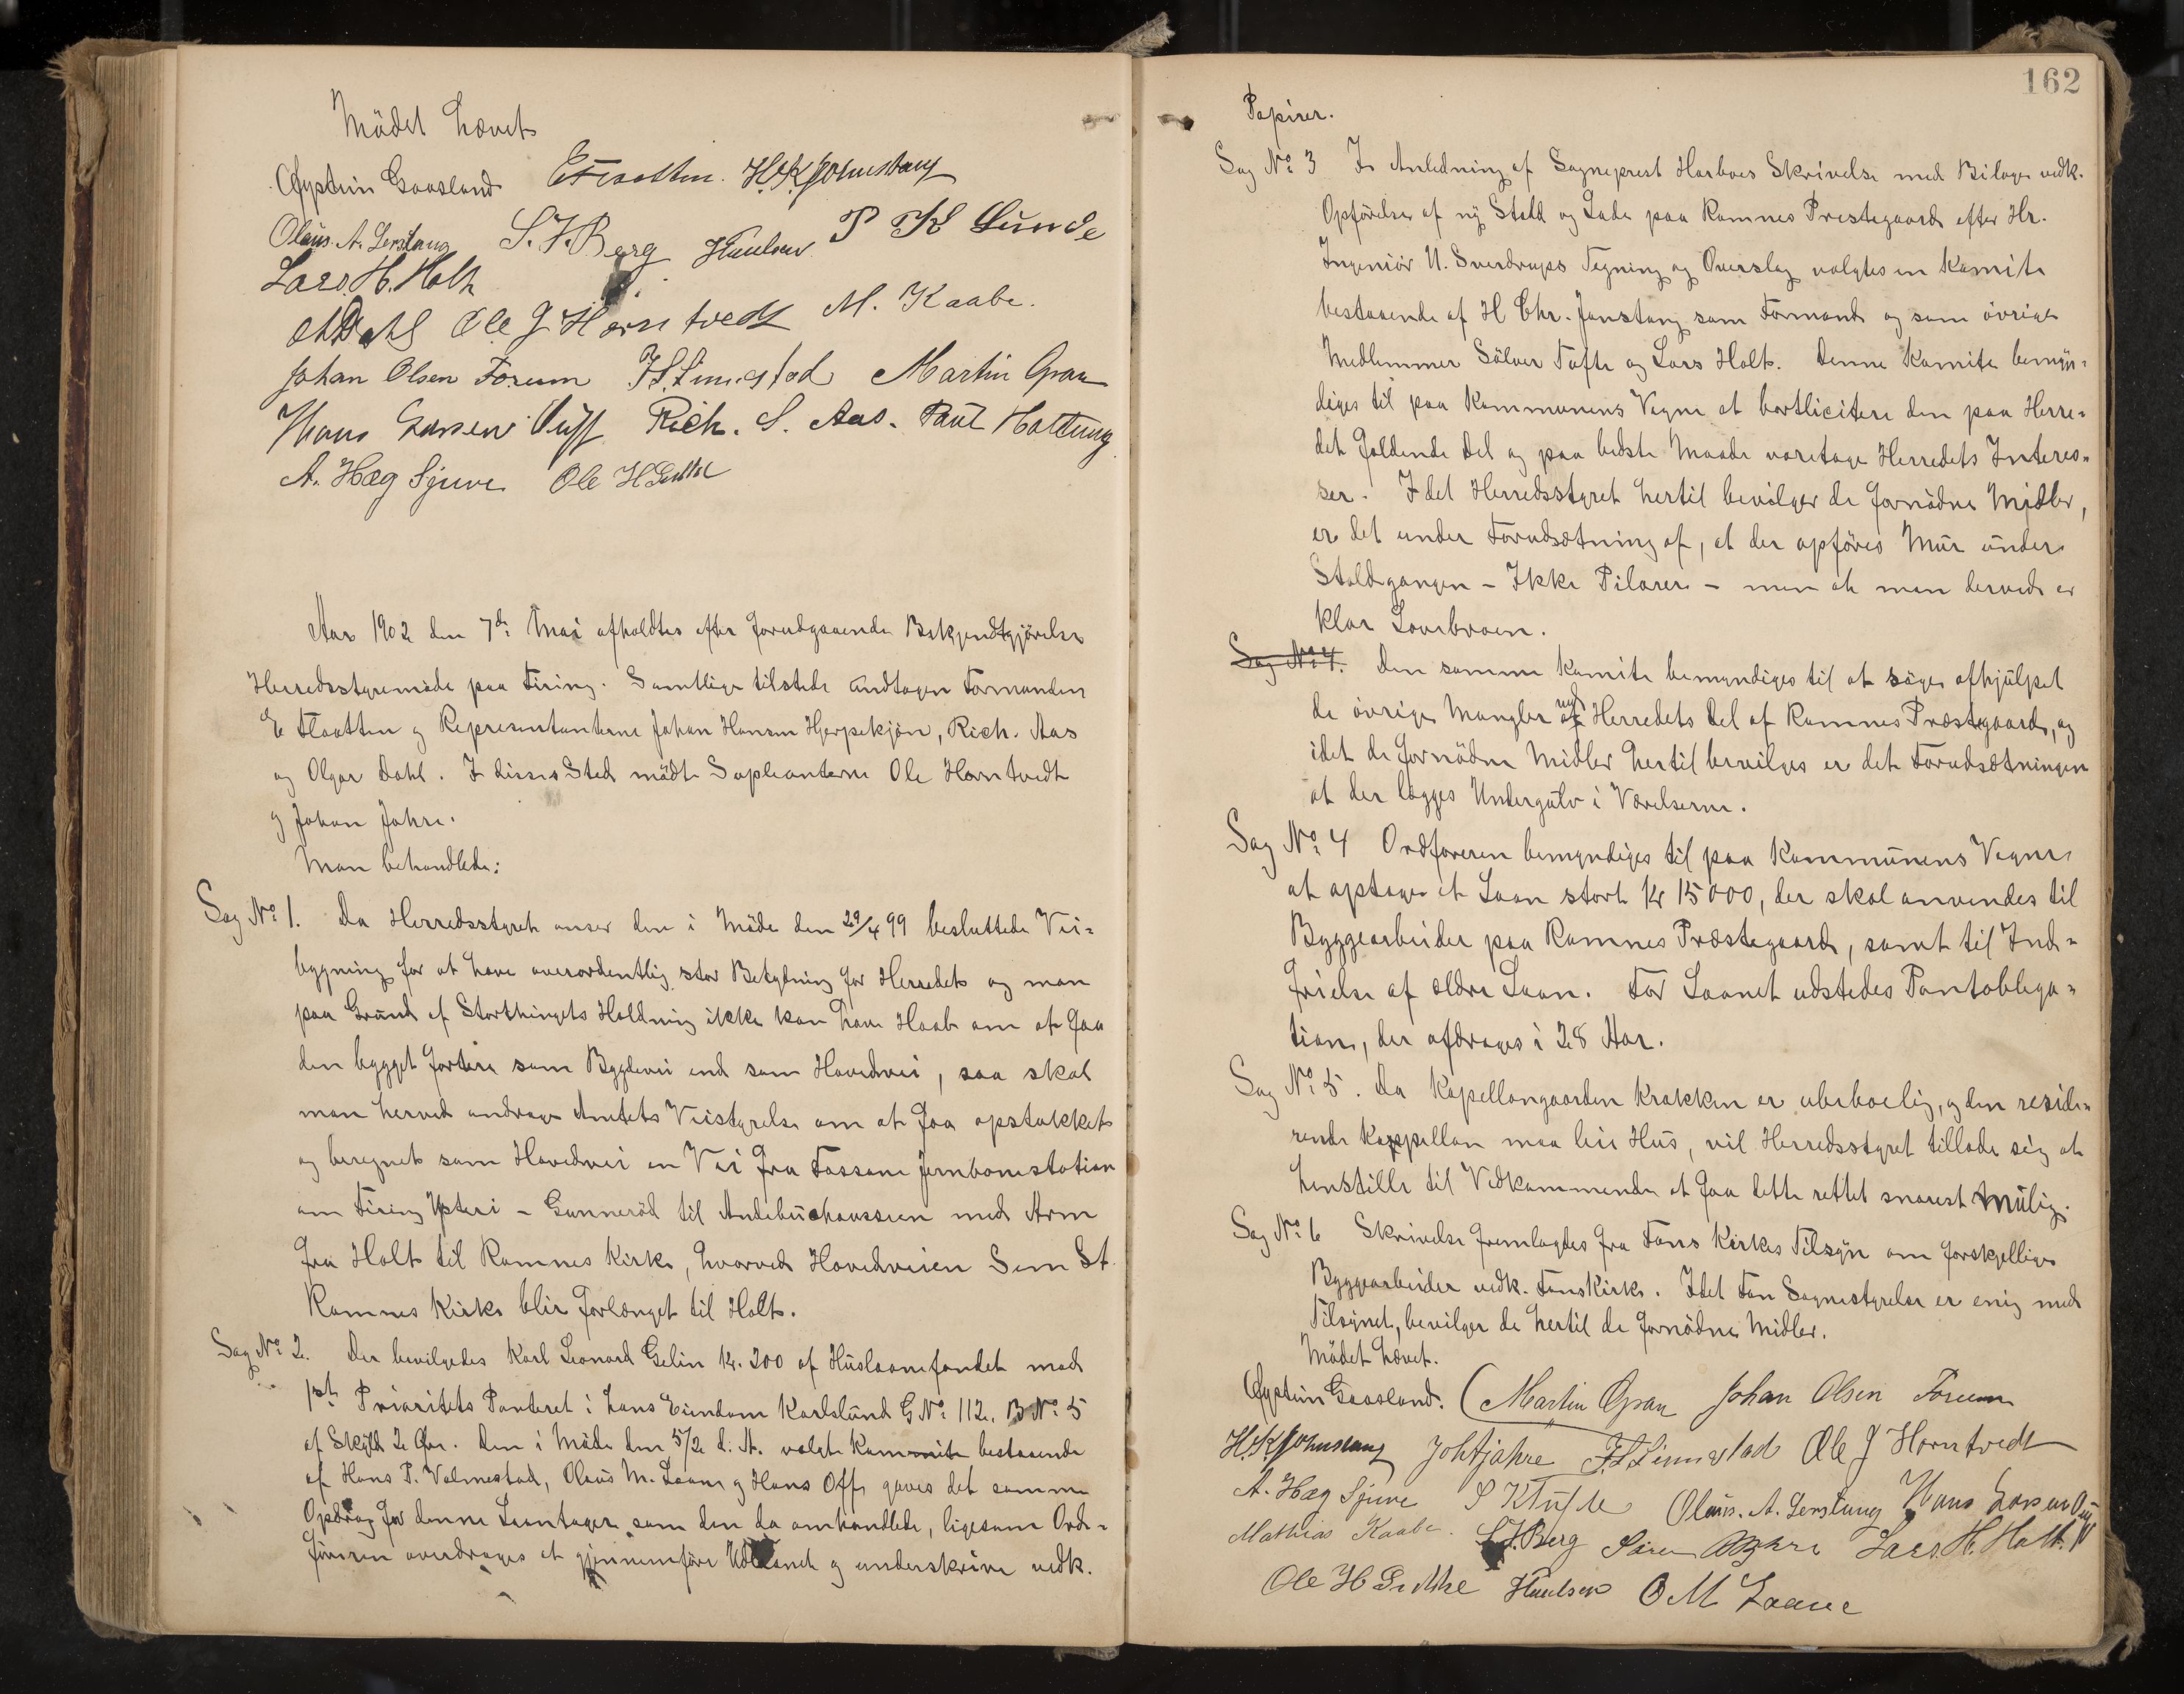 Mödet hævet
Øystein Gaasland E Flaatten. H. Kr. Johnstang
Olaus. A. Lerstang S. J. Berg HPaulsen P K Lunde
Lars. H. Holt
ODahl Ole J Horntvedt M. Kaabe.
Johan Olsen Forum F. L. Linnestad Martin Gran
Hans Larsen Rich. S. Aas. Paul Hottung
A. Hæg Sjuve Ole H
Aar 1902 den 7de Mai afholdtes efter forudgaaende Bekjendtgjörelse
Herredsstyremöde paa Firing. Samtlige tilstede undtagen Formanden
E Flaatten og Repræsentanterne Johan Hansen Hjerpekjøn, Rich. Aas
og Olgar Dahl. I disses Sted mödte Supleanterne Ole Horntvedt
og Johan Jahre.
Man behandlede:
Sag No. 1. Da Herredsstyret anser den i Möde den 29/4 99 besluttede Vei-
bygning for at have overordentlig stor Betydning for Herredet og man
paa Grund af Storthingets Holdning ikke kan have Haab om at faa
den bygget fortere som Bygdevei end som Hovedvei, saa skal
man herved andrage Amtets Veistyrelse om at faa opstukket
og beregnet som Hovedvei en Vei fra Fossane Jernbanestation
om Firing Ypteri - Gunneröd til Andebuchausseen med Arm
fra Holt til Ramnes Kirke, hvorved Hovedveien Sem St.
Ramnes Kirke blir forlænget til Holt.
Sag No. 2. Der bevilgedes Karl Leonard Gelin Kr. 200 af Huslaanefondet mod
1ste Prioritets Panteret i hans Eiendom Karlslund G No. 112, B No. 5
af Skyld 2 Øre. Den i Möde den 5/2 d. A. valgte Kommite bestaaende
af Hans P. Valmestad, Olaus M. Laane og Hans Off gaves det samme
Opdrag for denne Laantager som den da omhandlede, ligesom Ord-
föreren overdrages at gjennemföre Udlaanet og underskrive vedk.
162
Papirer.
Sag No. 3 I Anledning af Sogneprest Harboes Skrivelse med Bilage vedk.
Opförelse af ny Stald og Lade paa Ramnes Prestegaard efter Hr.
Ingeniör U. Sverdrups Tegning og Overslag valgtes en Komite
bestaaende af H Chr. Jonstang som Formand og som övrige
Medlemmer Sölver Tufte og Lars Holt. Denne Komite bemyn-
diges til paa Kommunens Vegne at bortlicitere den paa Herre-
det faldende Del og paa bedste Maade varetage Herredets Interes-
ser. Idet Herredsstyret hertil bevilger de fornödne Midler,
er det under Forudsætning af, at der opföres Mur under
Staldgangen - Ikke Pilarer - men at man derved er
klar Lovebroen.
Sag No. 4. Den samme Komite bemyndiges til at söge afhjulpet
de övrige Mangler ved Herredets Del af Ramnes Præstegaard, og
idet de fornödne Midler hertil bevilges er det Forudsætningen
at der lægges Undergulv i Værelserne.
Sag No. 4 Ordföreren bemyndiges til paa Kommunens Vegne
at optage et Laan stort Kr 15000, der skal anvendes til
Byggearbeider paa Ramnes Præstegaard, samt til Ind-
frielse af ældre Laan. For Laanet udstedes Pantobliga-
tion, der afdrages i 28 Aar.
Sag No. 5. Da Kapellangaarden Krakken er ubeboelig, og den reside-
rende Kappellan maa leie Hus, vil Herredsstyret tillade sig at
henstille til Vedkommende at faa dette rettet snarest mulig.
Sag No. 6 Skrivelse fremlagdes fra Fons Kirkes Tilsyn om forskjellige
Byggearbeider vedk. Fons Kirke. Idet Fon Sognestyrelse er enig med
Tilsynet, bevilger de hertil de fornödne Midler.
Mödet hævet.
Øystein Gaasland. Martin Gran Johan Olsen Forum
H. Kr. Johnstang Joh Jahre F. L. Linnestad Ole J Horntvedt
A. Hæg Sjuve S K Tufte Olaus. A. Lerstang Hans Larsen
Mathias Kaabe. S. J. Berg Lars. H. Holt.
Ole H HPaulsen O M Laane